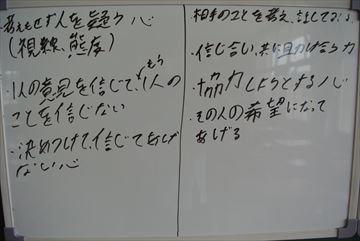 考えもせず人を疑う心
(視線、態度)
・1人の意見を信じて、もう1人の
ことを信じない
・決めつけて、信じてあげ
ない心
相手のことを考え、
・信じ合い、共に助け合う力
・協力しようとする心
・その人の希望になって
あげる